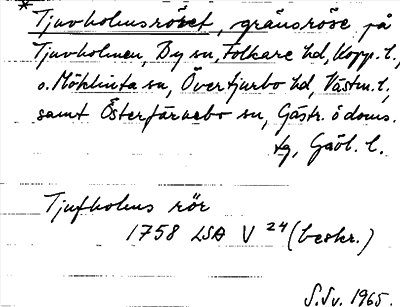 *Tjuvholmsröset, gränsröse på
Tjuvholmen, By sn, Folkare hd, Kopp. l.,
o. Möklinta sn, Övertjurbo hd, Västm. l.,
samt Österfärnebo sn, Gästr. ö doms.
tg, Gävl. l.
Tjufholms rör
1758 LSA V 24 (beskr.)
S.Sv. 1965.